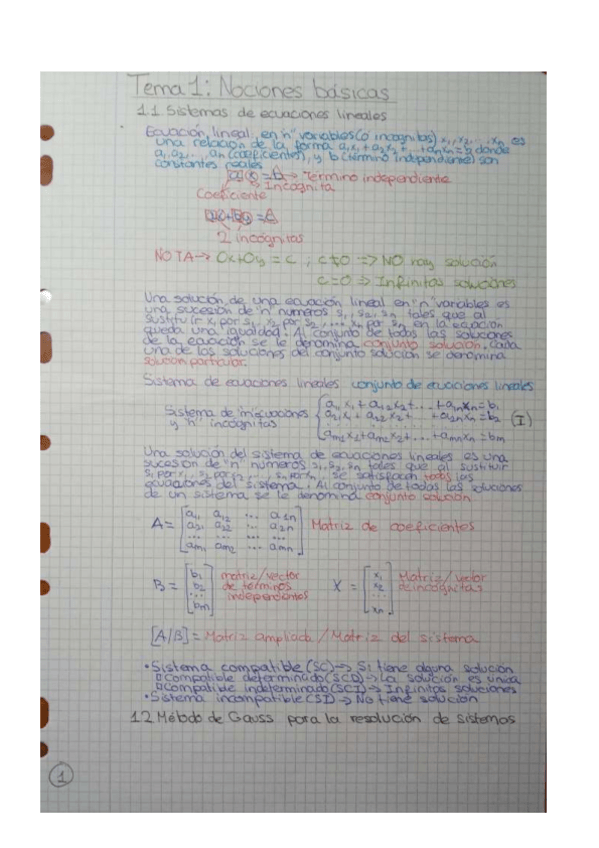 Tema 1: Nociones básicas
1.1 Sistemas de ecuaciones lineales
Ecuación lineal en "n" variables (o incognitas) x₁, x₂, ..., xn es
una relación de la forma a₁x₁ + a₂x₂ + ... + anxn = b donde
a₁, a₂, ..., an (coeficientes), y b (término independiente) son
constantes reales
ax = b → Término independiente
Incognita
Coeficiente
ax + by = c
2 incognitas
NOTA → 0x + 0y = c ; c ≠ 0 => NO hay solución
c = 0 => Infinitas soluciones
Una solución de una ecuación lineal en "n" variables es
una sucesión de "n" números s₁, s₂, sn tales que al
sustituir x₁ por s₁, x₂ por s₂, ... xn por sn en la ecuación
queda una igualdad. Al conjunto de todas las soluciones
de la ecuación se le denomina conjunto solución. Cada
una de las soluciones del conjunto solución se denomina
solución particular.
Sistema de ecuaciones lineales conjunto de ecuaciones lineales
Sistema de "m" ecuaciones
y "n" incognitas
a₁₁x₁ + a₁₂x₂ + ... + a₁nxn = b₁
a₂₁x₁ + a₂₂x₂ + ... + a₂nxn = b₂ (I)
...
am₁x₁ + am₂x₂ + ... + amnxn = bm
Una solución del sistema de ecuaciones lineales es una
sucesión de "n" números s₁, s₂, sn tales que al sustituir
s₁ por x₁, s₂ por x₂, ..., sn por xn, se satisfacen todas las
ecuaciones del sistema. Al conjunto de todas las soluciones
de un sistema se le denomina conjunto solución
A = [a₁₁ a₁₂ ... a₁n
a₂₁ a₂₂ ... a₂n
... ... ... ...
am₁ am₂ ... amn] Matriz de coeficientes
B = [b₁ b₂ ... bm] matriz/vector
de términos
independientes
X = [x₁ x₂ ... xn] Matriz/vector
de incognitas
[A/B] = Matriz ampliada / Matriz del sistema
• Sistema compatible (SC) → Si tiene alguna solución
Compatible determinado (SCD) → La solución es única
Compatible indeterminado (SCI) → Infinitas soluciones
• Sistema incompatible (SI) → No tiene solución
1.2 Método de Gauss para la resolución de sistemas
1